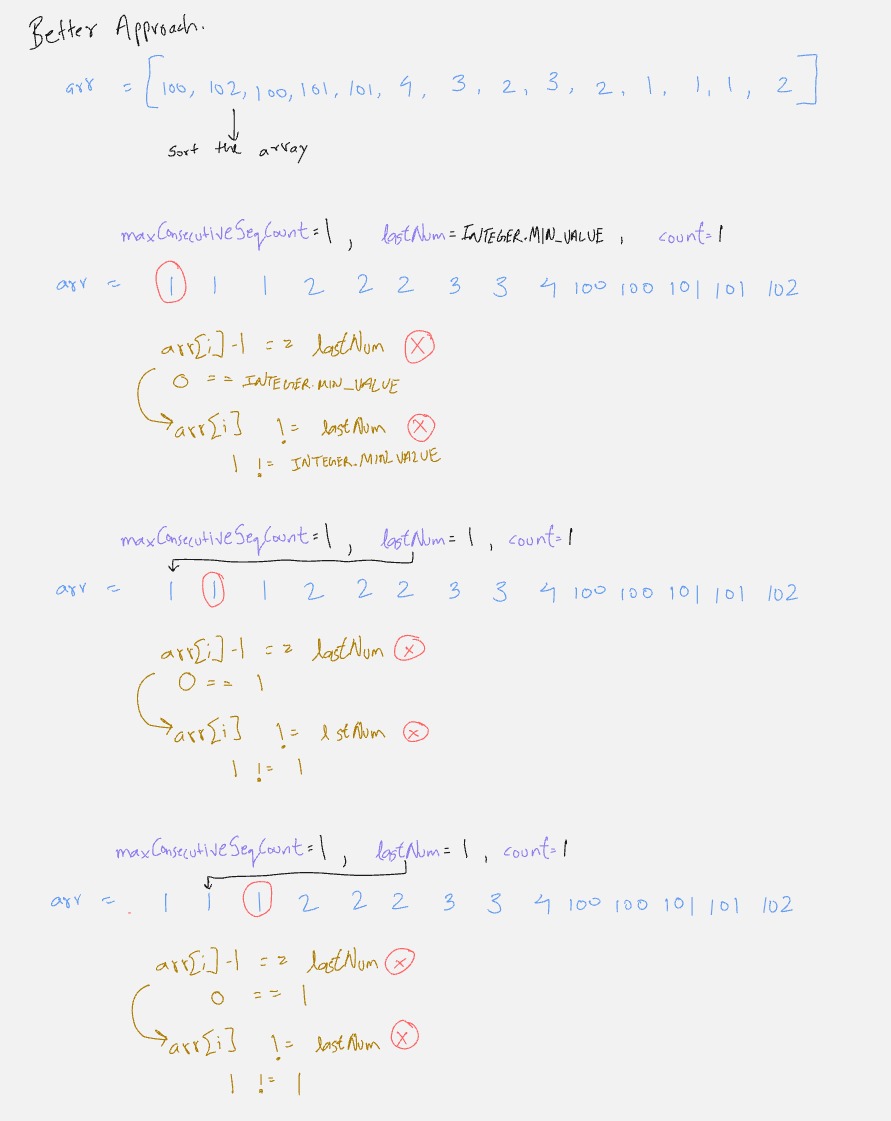 Better Approach.
arr = [100, 102, 100, 101, 101, 4, 3, 2, 3, 2, 1, 1, 1, 2]
Sort the array
maxConsecutiveSeqCount=1, lastNum=INTEGER.MIN_VALUE, count=1
arr = 1 1 1 2 2 2 3 3 4 100 100 101 101 102
arr[i]-1 == lastNum X
0 == INTEGER.MIN_VALUE
arr[i] != lastNum X
1 != INTEGER.MIN_VALUE
maxConsecutiveSeqCount=1, lastNum=1, count=1
arr = 1 1 1 2 2 2 3 3 4 100 100 101 101 102
arr[i]-1 == lastNum X
0 == 1
arr[i] != lstNum X
1 != 1
maxConsecutiveSeqCount=1, lastNum=1, count=1
arr = 1 1 1 2 2 2 3 3 4 100 100 101 101 102
arr[i]-1 == lastNum X
0 == 1
arr[i] != lastNum X
1 != 1